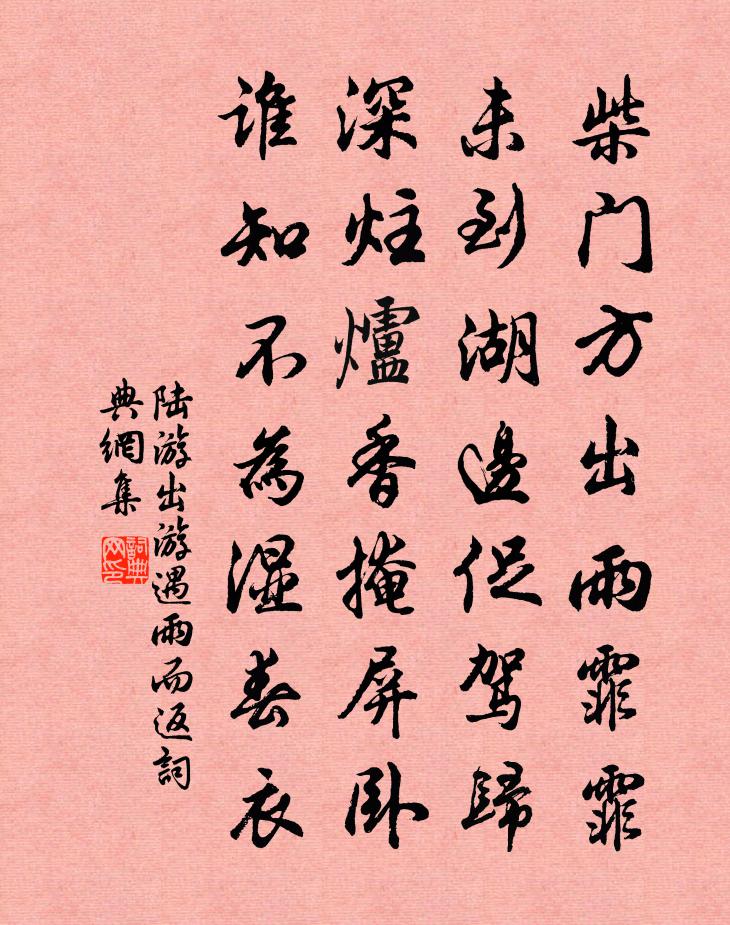 柴门方出雨霏霏
未到湖邊促駕歸
深炷爐香掩屏卧
谁知不為湿春衣
陆游出游遇雨而返詞
典網集
詞典
网印